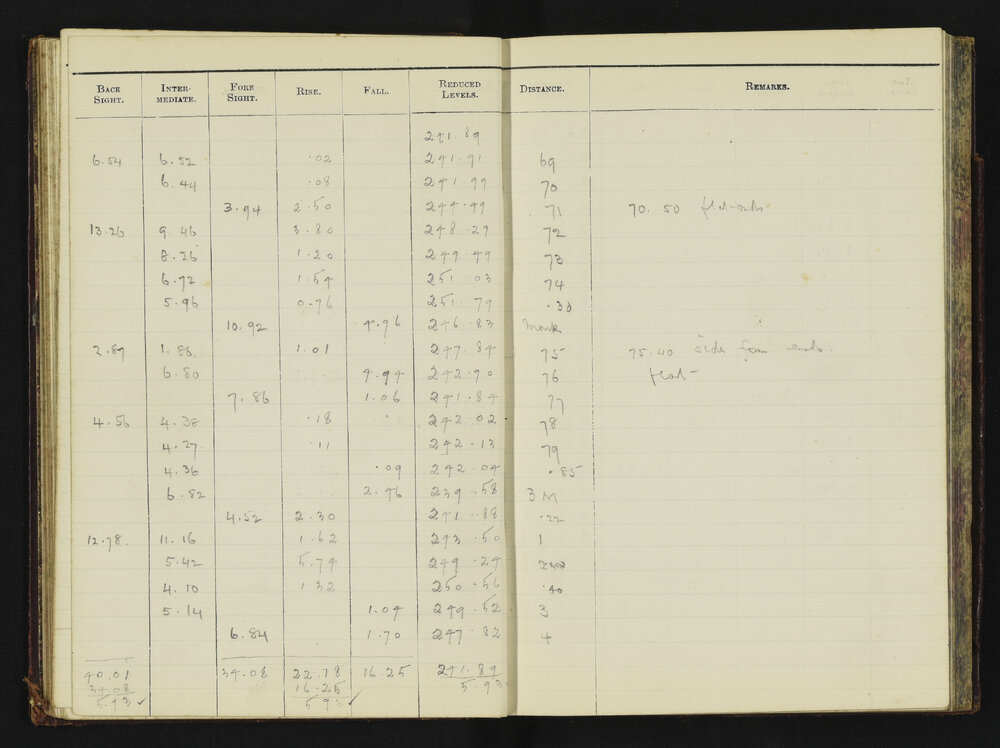 BACK SIGHT. INTER- MEDIATE. FORE SIGHT. RISE. FALL. REDUCED LEVELS. DISTANCE. REMARKS.
241 89
6.54 6.52 .02 241.91 69
6.44 .08 241.99 70
3.94 2.50 244.49 71 70.50 flat
13.26 9.46 3.80 248.29 72
8.26 1.20 249.49 73
6.72 1.54 251.03 74
5.96 0.76 251.79 .30
10.92 4.96 246.83 Mark
2.87 1.86 1.01 247.84 75 75.40 side from ends.
6.80 4.94 242.90 76 flat
7.86 1.06 241.84 77
4.56 4.38 .18 242.02 78
4.27 .11 242.13 79
4.36 .09 242.04 .85
6.82 2.46 239.58 3 M
4.52 2.30 241.88 .22
12.78. 11.16 1.62 243.50 1
5.42 5.74 249.24
4.10 1.32 250.56 .40
5.14 1.04 249.52 3
6.84 1.70 247.82 4
40.01 34.08 22.18 16.25 241.89
34.08 16.25 5.93
5.93 ✓ 5.93 ✓